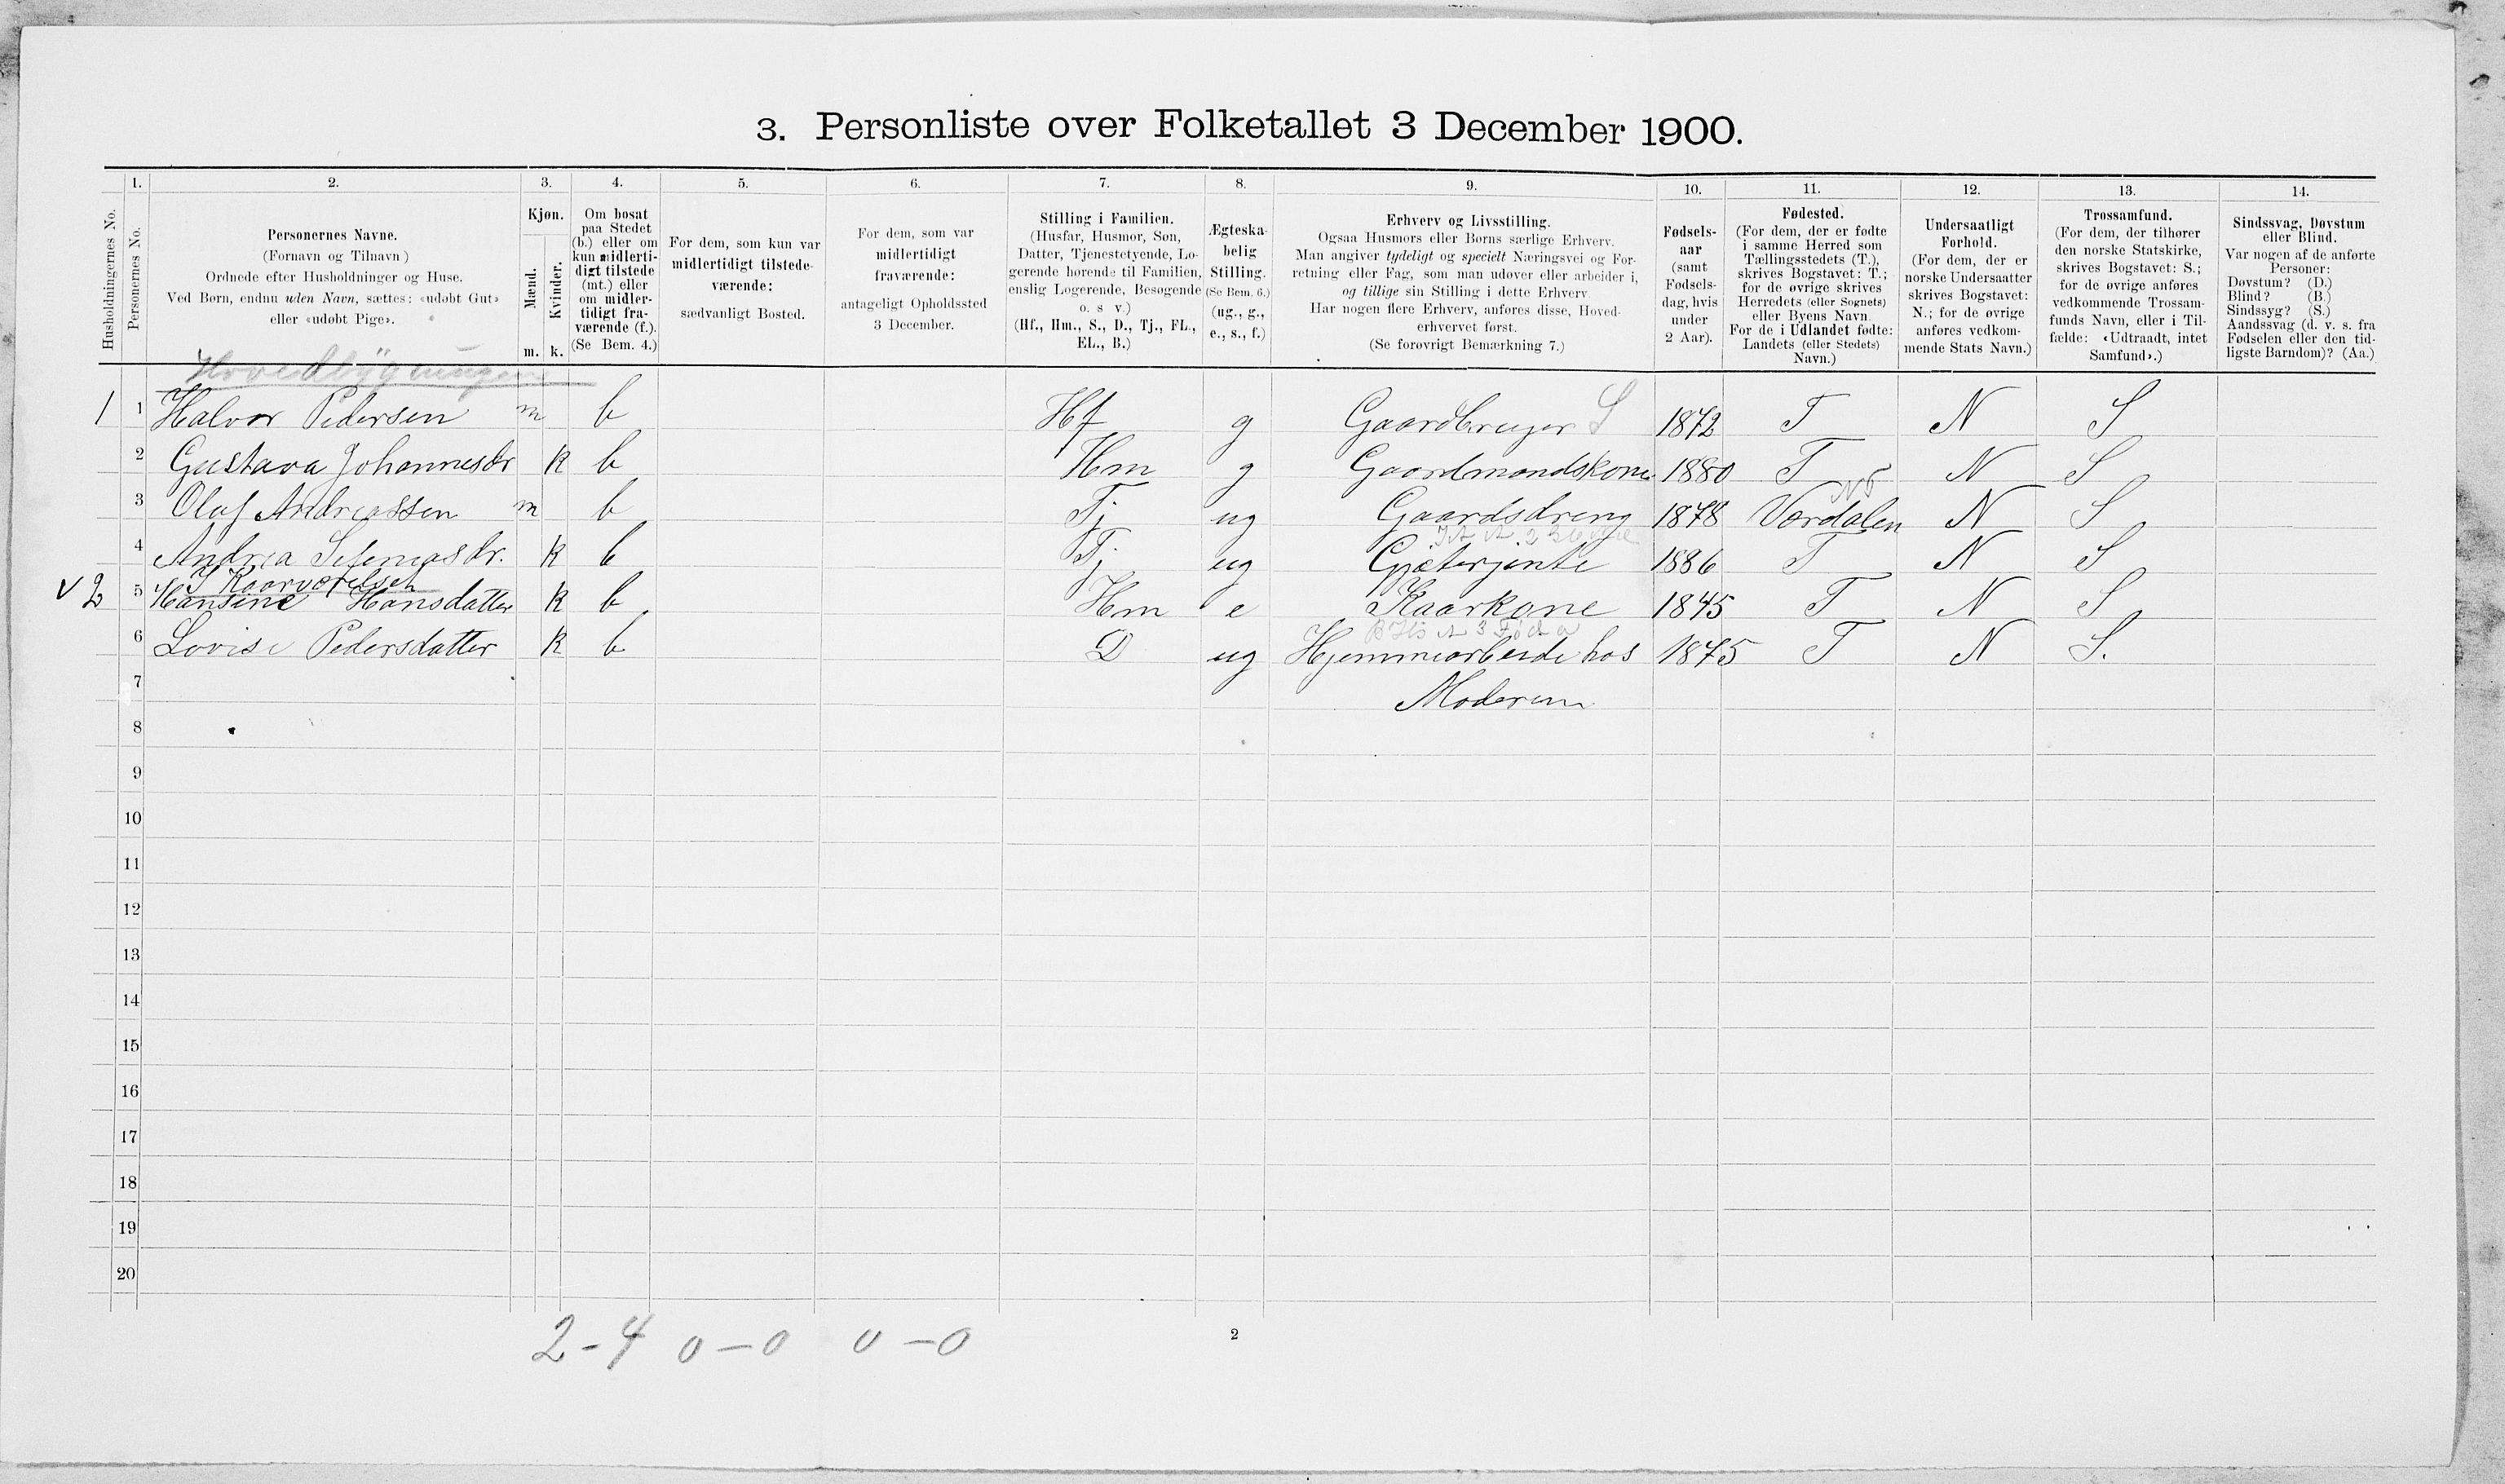 3. Personliste over Folketallet 3 December 1900.
1. 2. 3. 4. 5. 6. 7. 8. 9. 10. 11. 12. 13. 14.
Husholdningernes No.
Personernes No.
Personernes Navne.
(Fornavn og Tilnavn)
Ordnede efter Husholdninger og Huse.
Ved Børn, endnu uden Navn, sættes: «udøbt Gut»
eller «udøbt Pige».
Kjøn.
Mænd.
Kvinder.
m. k.
Om bosat
paa Stedet
(b.) eller om
kun midlerti-
digt tilstede
(mt.) eller
om midler-
tidigt fra-
værende (f.).
(Se Bem. 4.)
For dem, som kun var
midlertidigt tilstede-
værende:
sædvanligt Bosted.
For dem, som var
midlertidigt
fraværende:
antageligt Opholdssted
3 December.
Stilling i Familien.
(Husfar, Husmor, Søn,
Datter, Tjenestetyende, Lo-
gerende hørende til Familien,
enslig Logerende, Besøgende
o. s v.)
(Hf., Hm., S., D., Tj., FL.,
EL., B.)
Ægteska-
belig
Stilling.
(Se Bem. 6.)
(ug., g.,
e., s., f.)
Erhverv og Livsstilling.
Ogsaa Husmors eller Børns særlige Erhverv.
Man angiver tydeligt og specielt Næringsvei og For-
retning eller Fag, som man udøver eller arbeider i,
og tillige sin Stilling i dette Erhverv
Har nogen flere Erhverv, anføres disse, Hoved-
erhvervet først.
(Se forøvrigt Bemærkning 7.)
Fødsels-
aar
(samt
Fødsels-
dag, hvis
under
2 Aar).
Fødested.
(For dem, der er fødte
i samme Herred som
Tællingsstedets (T.),
skrives Bogstavet: T.;
for de øvrige skrives
Herredets (eller Sognets)
eller Byens Navn.
For de i Udlandet fødte:
Landets (eller Stedets)
Navn.)
Undersaatligt
Forhold.
(For dem, der er
norske Undersaatter
skrives Bogstavet:
N.; for de øvrige
anføres vedkom-
mende Stats Navn.)
Trossamfund.
(For dem, der tilhører
den norske Statskirke,
skrives Bogstavet: S.;
for de øvrige anføres
vedkommende Trossam-
funds Navn, eller i Til-
fælde: «Udtraadt, intet
Samfund».)
Sindssvag, Døvstum
eller Blind.
Var nogen af de anførte
Personer:
Døvstum? (D.)
Blind? (B.)
Sindssyg? (S.)
Aandssvag (d. v. s. fra
Fødselen eller den tid-
ligste Barndom)? (Aa.)
Hovedbygningen
1 1 Halvor Pedersen m b Hf g Gaardbruger S 1872 T N S
2 Gustava Johannesdr k b Hm g Gaardmandskone 1880 T N S
3 Oluf Andreassen m b Tj ug Gaardsdreng 1878 Værdalen N S
4 Andrea dr. k b Tj. ug Gjæterjente 1886 T N S
I Kaarværelset
v 2 5 Hansine Hansdatter k b Hm e Kaarkone 1845 T N S
6 Lovise Pedersdatter k b D ug Hjemmearbeide hos 1875 T N S.
7 Moderen
8
9
10
11
12
13
14
15
16
17
18
19
20
2-4 0-0 0-0
2